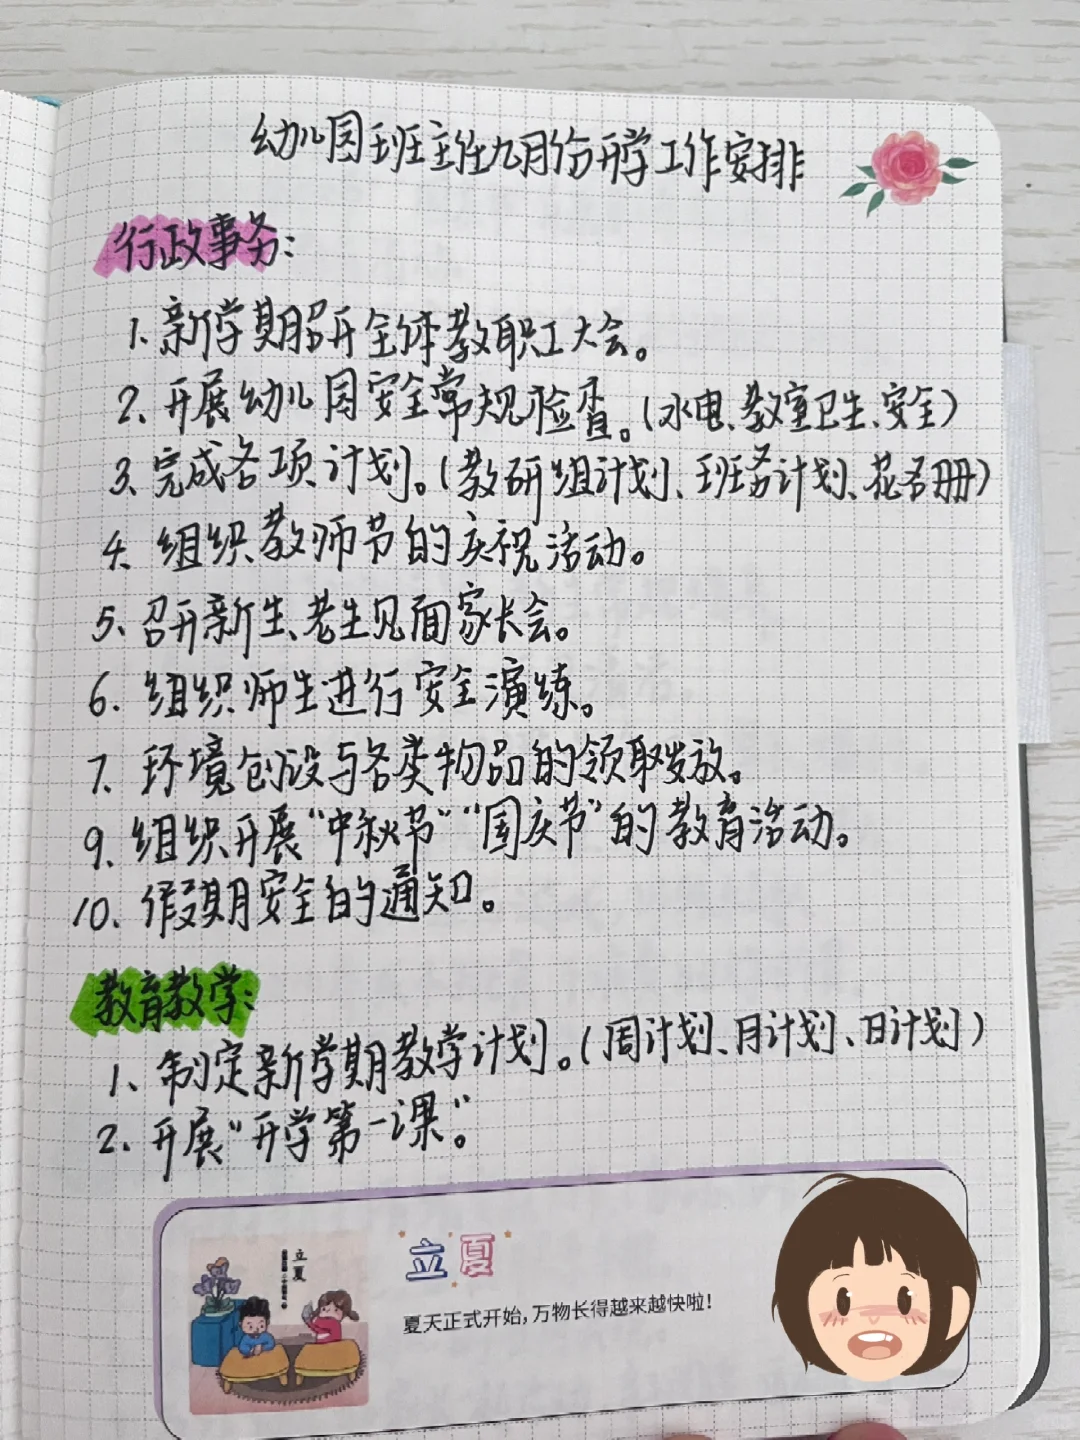 幼儿园班主任九月份开学工作安排
行政事务:
1.新学期召开全体教职工大会。
2、开展幼儿园安全常规检查。(水电、教室卫生、安全)
3、完成各项计划。(教研组计划、班务计划、花名册)
4、组织教师节的庆祝活动。
5、召开新生、老生见面家长会。
6、组织师生进行安全演练。
7、环境创设与各类物品的领取发放。
9、组织开展“中秋节”“国庆节”的教育活动。
10、假期安全的通知。
教育教学:
1、制定新学期教学计划。(周计划、月计划、日计划)
2、开展“开学第一课”。
立夏
立夏
夏天正式开始,万物长得越来越快啦!